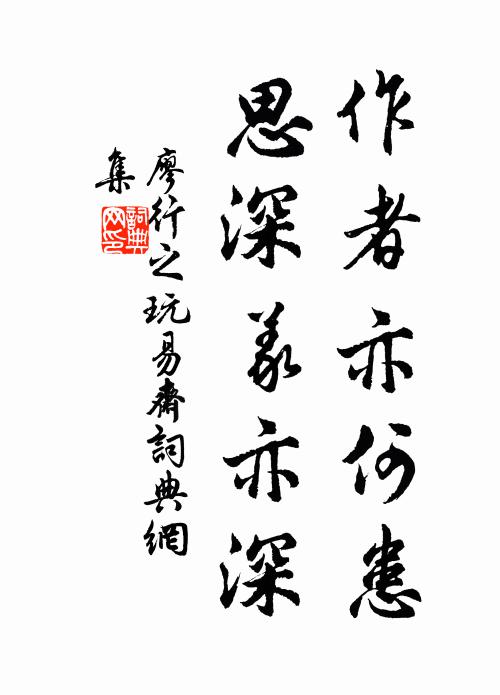 作者亦何患
思深義亦深
廖行之玩易齋詞典網
集
詞典
网印